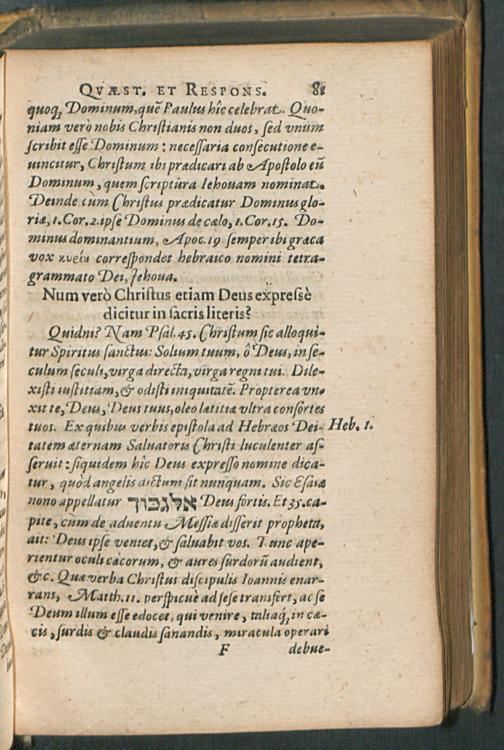 QVÆST. ET RESPONS. 81
quoq; Dominum, quẽ Paulus hîc celebrat. Quo-
niam verò nobis Christianis non duos, sed vnum
scribit esse Dominum: necessaria consecutione e-
uincitur, Christum ibi prædicari ab Apostolo eũ
Dominum, quem scriptura Iehouam nominat.
Deinde cùm Christus prædicatur Dominus glo-
riæ, 1. Cor. 2. ipse Dominus de cælo, 1. Cor. 15. Do-
minus dominantium, Apoc. 19 semper ibi græca
vox correspondet hebraico nomini tetra-
grammato Dei, Jehoua.
Num verò Christus etiam Deus expressè
dicitur in sacris literis?
Quidni? Nam Psal. 45. Christum sic alloqui-
tur Spiritus sanctus: Solium tuum, ô Deus, in se-
culum seculi, virga directa, virga regni tui. Dile-
xisti iustitiam, & odisti iniquitatẽ. Propterea vn-
xit te, Deus, Deus tuus, oleo lætitiæ vltra consortes
tuos. Ex quibus verbis epistola ad Hebræos Dei- Heb. 1.
tatem æternam Saluatoris Christi luculenter as-
seruit: siquidem hîc Deus expresso nomine dica-
tur, quod angelis dictum sit nunquam. Sic Esaiæ
nono appellatur אלגבור Deus fortis. Et 35. ca-
pite, cùm de aduentu Messiæ disserit propheta,
ait: Deus ipse veniet, & saluabit vos. Tunc ape-
rientur oculi cæcorum, & aures surdorũ audient,
&c. Quæ verba Christus discipulis Ioannis enar-
rans, Matth. 11. perspicuè ad sese transfert, ac se
Deum illum esse edocet, qui venire, taliaq́; in cæ-
cis, surdis & claudis sanandis, miracula operari
F debue-